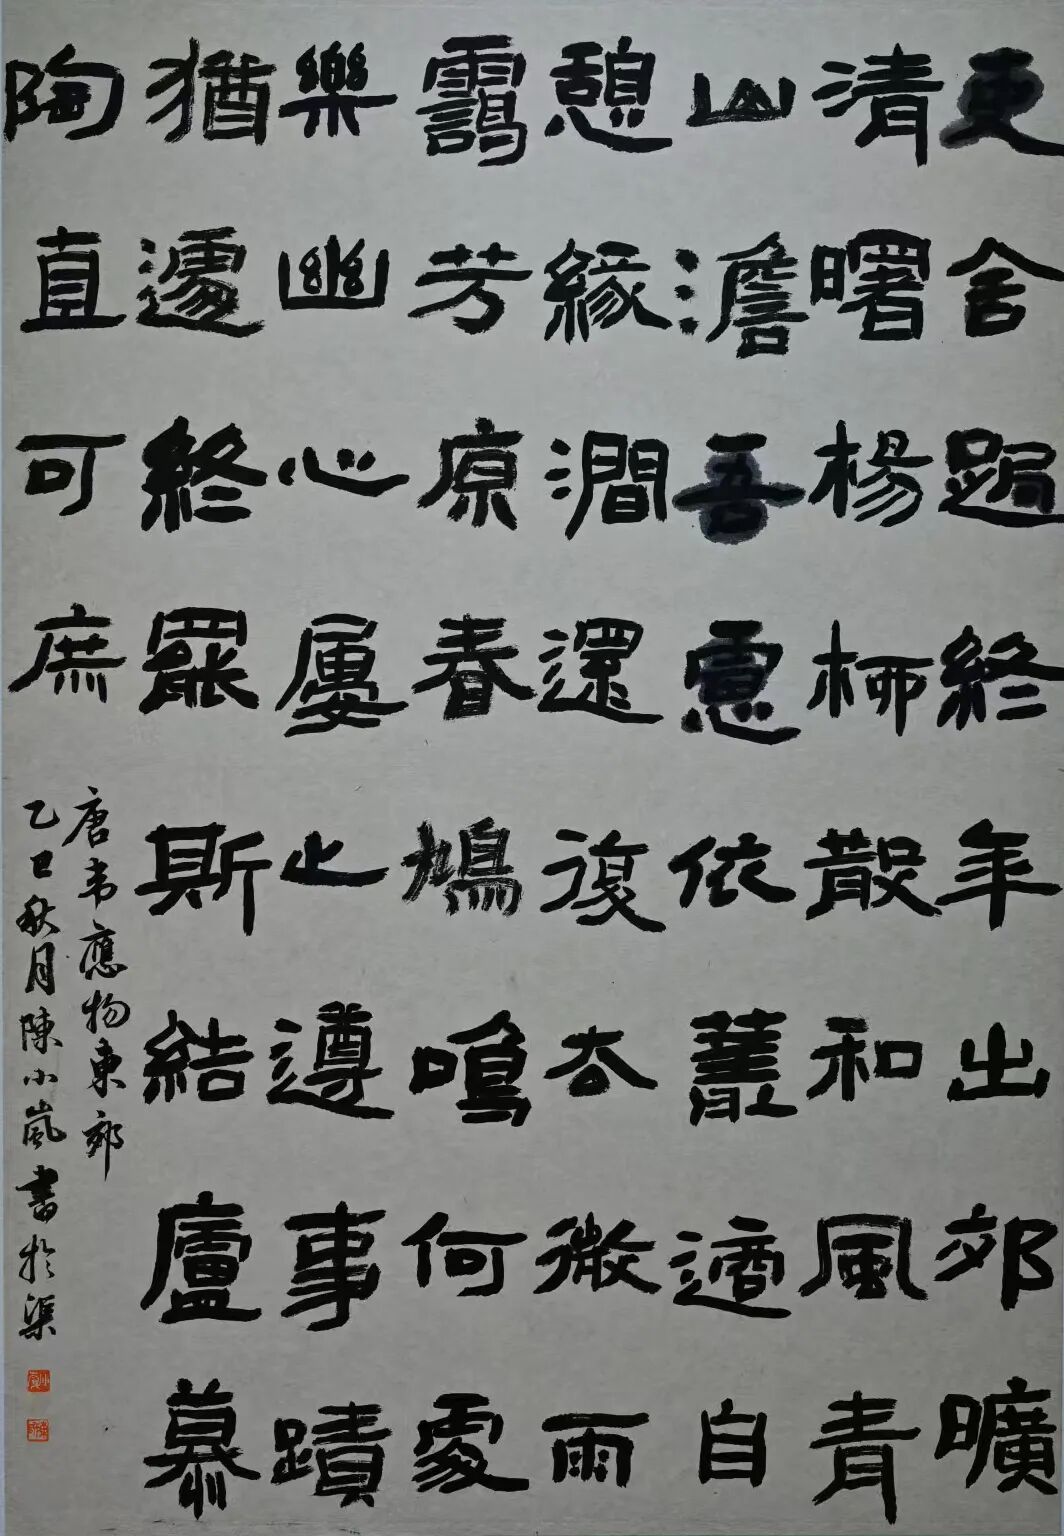 吏舍跼終年出郊曠
清曙楊柳散和風青
山澹吾慮依叢適自
憩緣澗還復去微雨
靄芳原春鳩鳴何處
樂幽心屢止遵事蹟
猶遽終罷斯結廬慕
陶直可庶
唐韋應物東郊
乙巳秋月陳小嵐書於渠